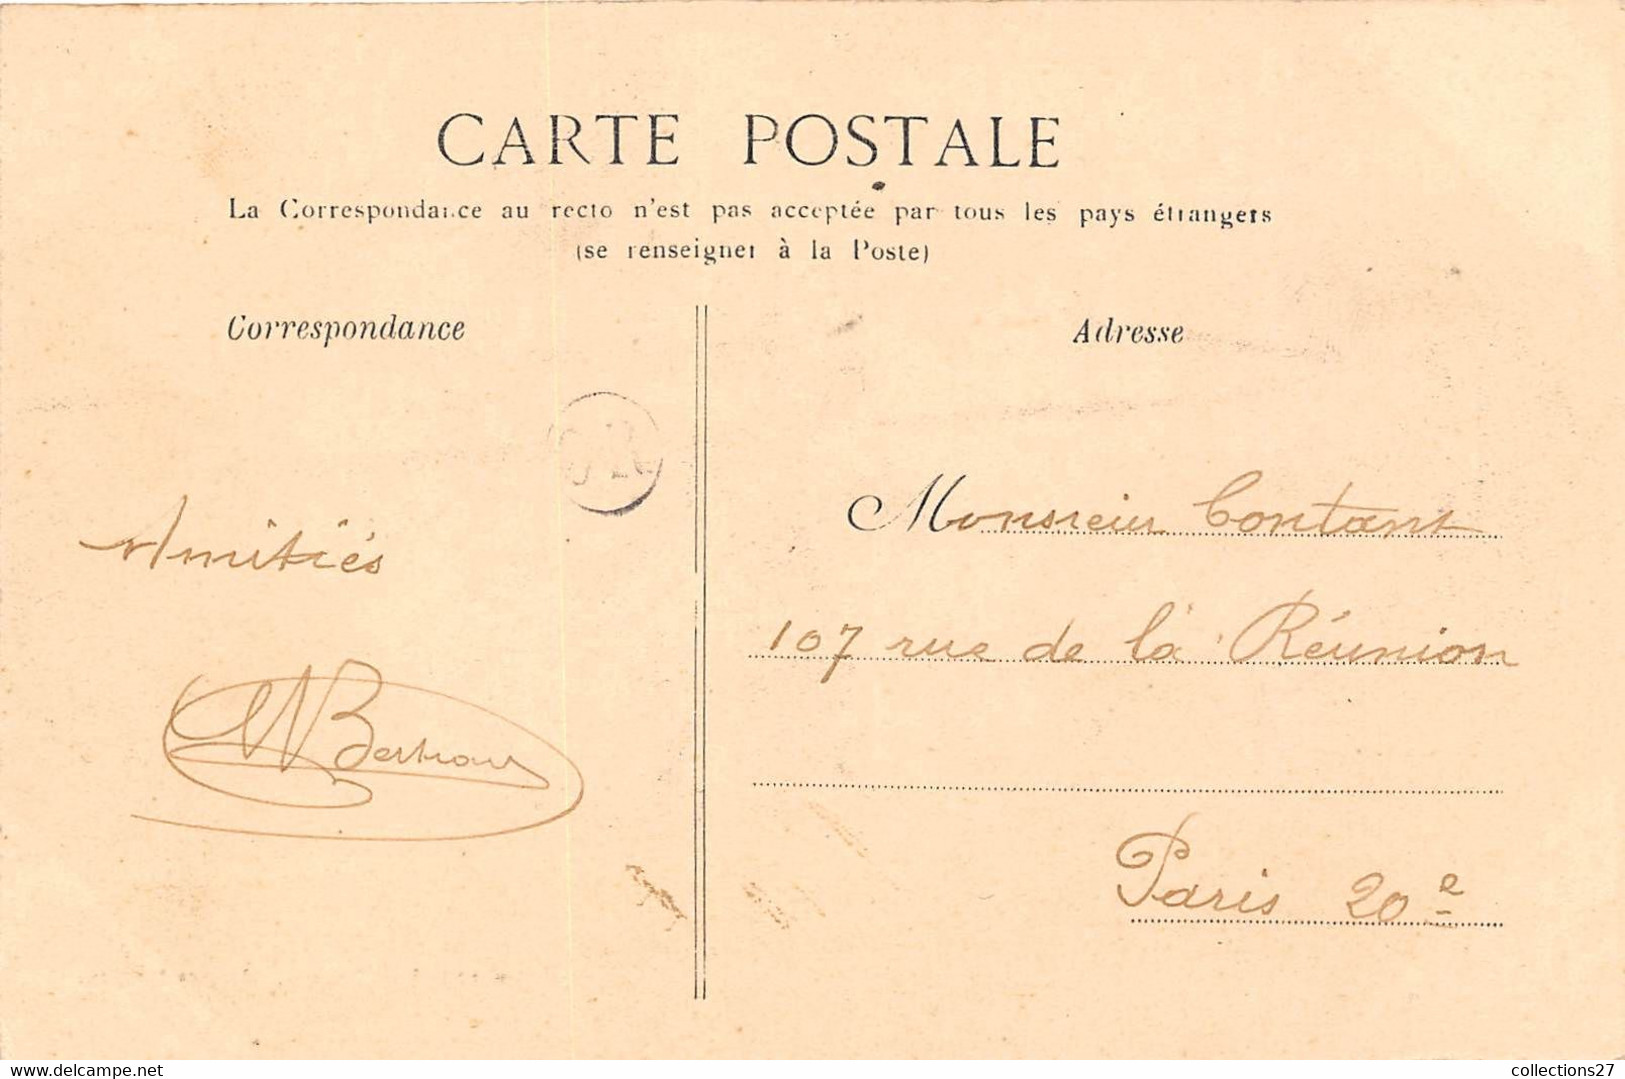 CARTE POSTALE
La Correspondance au recto n'est pas acceptée par tous les pays étrangers
(se renseigner à la Poste)
Correspondance
Adresse
Amitiés
Monsieur Contant
107 rue de la Réunion
Paris 20e
delcampe.net
collections27